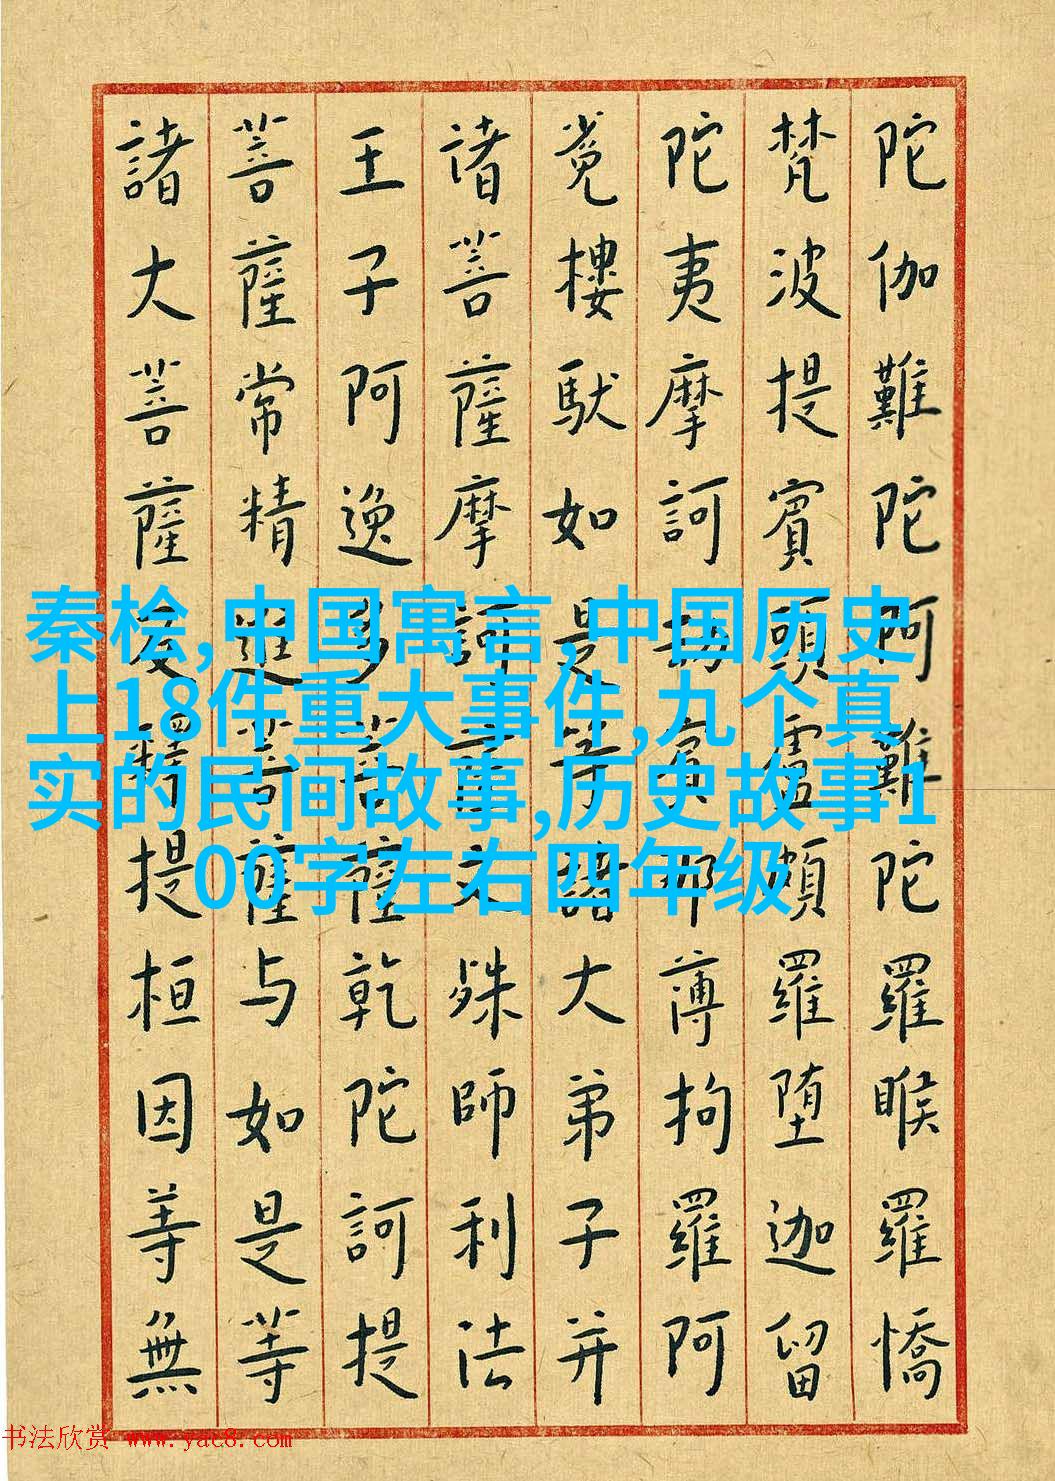 陀伽難陀阿難陀羅睺羅憍
梵波提賓頭盧頗羅堕迦留
陀夷摩訶劫賓那薄拘羅阿
㝹樓馱如是等諸大弟子并
诸菩薩摩訶薩文殊師利法
王子阿逸多菩薩乾陀訶提
菩薩常精進菩薩与如是等
諸大菩薩及釋提桓因等無
秦桧,中国寓言,中国历史
上18件重大事件,九个真
实的民间故事,历史故事1
00字左右四年级
书法欣赏 www.yac8.com